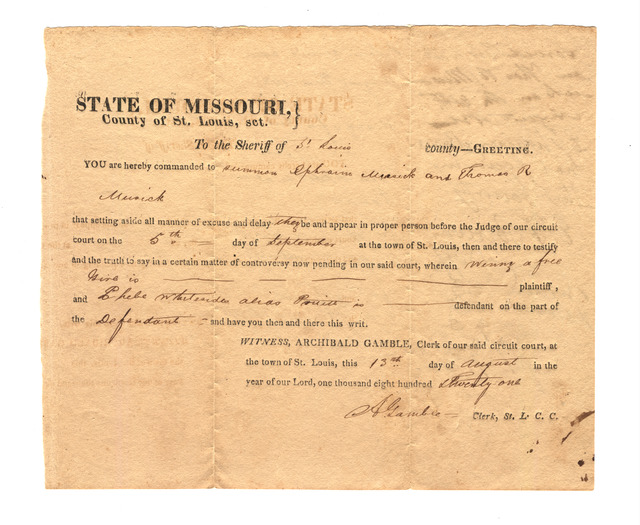 STATE OF MISSOURI,}
County of St. Louis, sct.
To the Sheriff of St Louis county—GREETING.
YOU are hereby commanded to summon Ephraim Musick and Thomas R
Musick
that setting aside all manner of excuse and delay they be and appear in proper person before the Judge of our circuit
court on the 5th day of September at the town of St. Louis, then and there to testify
and the truth to say in a certain matter of controversy now pending in our said court, wherein Winny a free
Girl is plaintiff,
and Phebe Whitesides alias Pruitt is defendant on the part of
the Defendant and have you then and there this writ.
WITNESS, ARCHIBALD GAMBLE, Clerk of our said circuit court, at
the town of St. Louis, this 13th day of August in the
year of our Lord, one thousand eight hundred & twenty one
A Gamble Clerk, St. L. C. C.